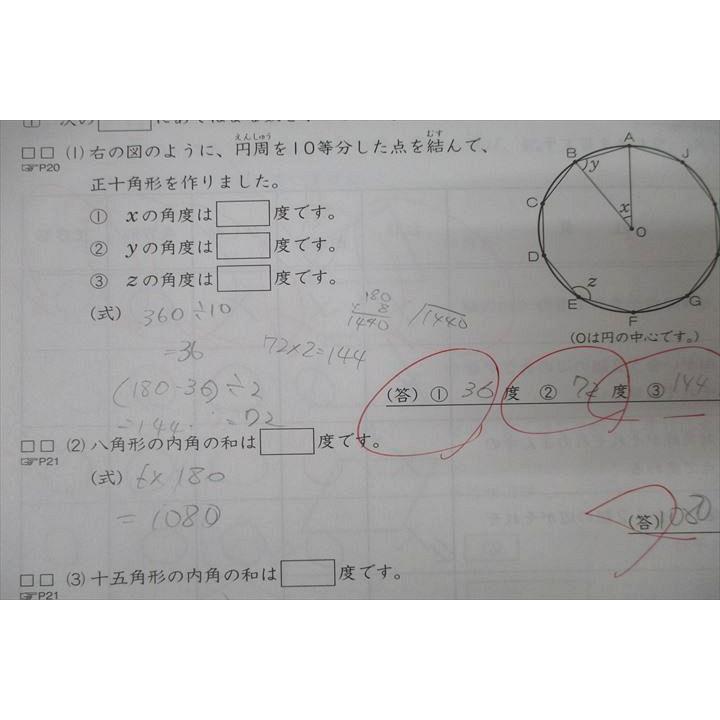 (1) 右の図のように、円周を10等分した点を結んで、
えんしゅう むす
☞P20
正十角形を作りました。
① xの角度は 度です。
② yの角度は 度です。
③ zの角度は 度です。
(式) 360÷10
=36
(180-36)÷2
=144 =72
72×2=144
180
× 8
1440
1440
A
B
y
J
C
x
O
D
E
z
F
G
(Oは円の中心です。)
(答) ① 36 度 ② 72 度 ③ 144
(2) 八角形の内角の和は 度です。
☞P21
(式) 6×180
=1080
(答)1080
(3) 十五角形の内角の和は 度です。
☞P21